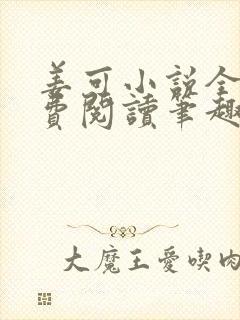 姜可小说全
費閱讀筆趣
大魔王愛喫肉